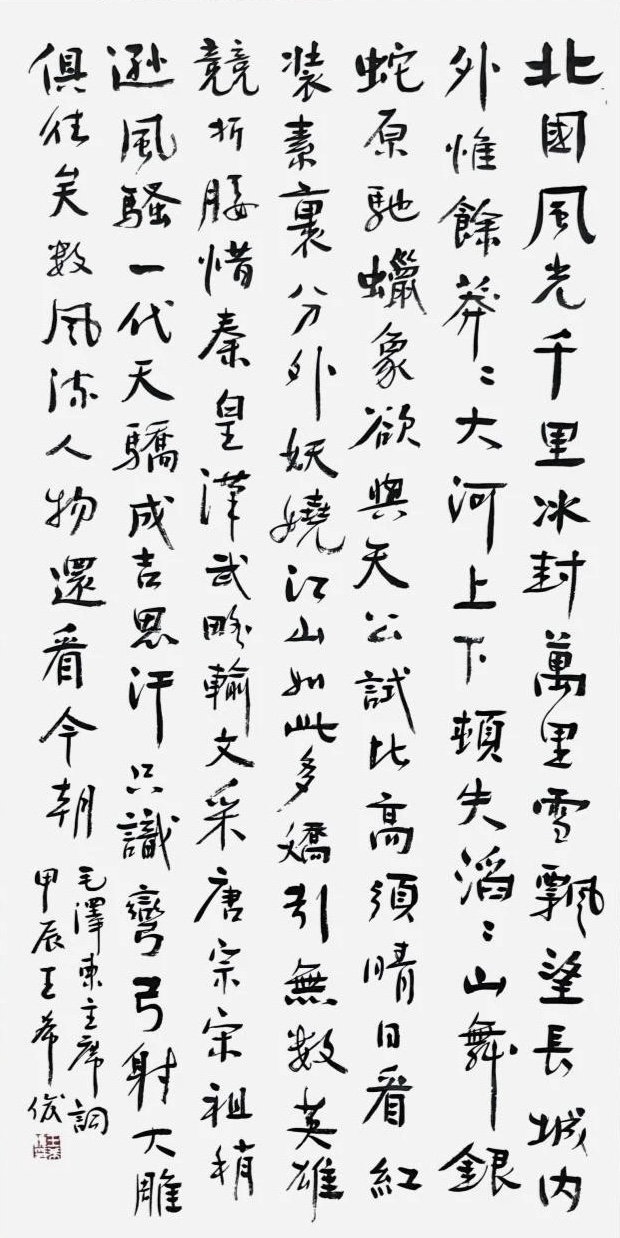 北國風光千里冰封萬里雪飄望長城内
外惟餘莽〻大河上下頓失滔〻山舞銀
蛇原馳蠟象欲與天公試比高須晴日看紅
装素裹分外妖嬈江山如此多嬌引無数英雄
競折腰惜秦皇漢武略輸文采唐宗宋祖稍
遜風騷一代天驕成吉思汗只識彎弓射大雕
俱往矣数風流人物還看今朝
毛澤東主席詞
甲辰王希俊